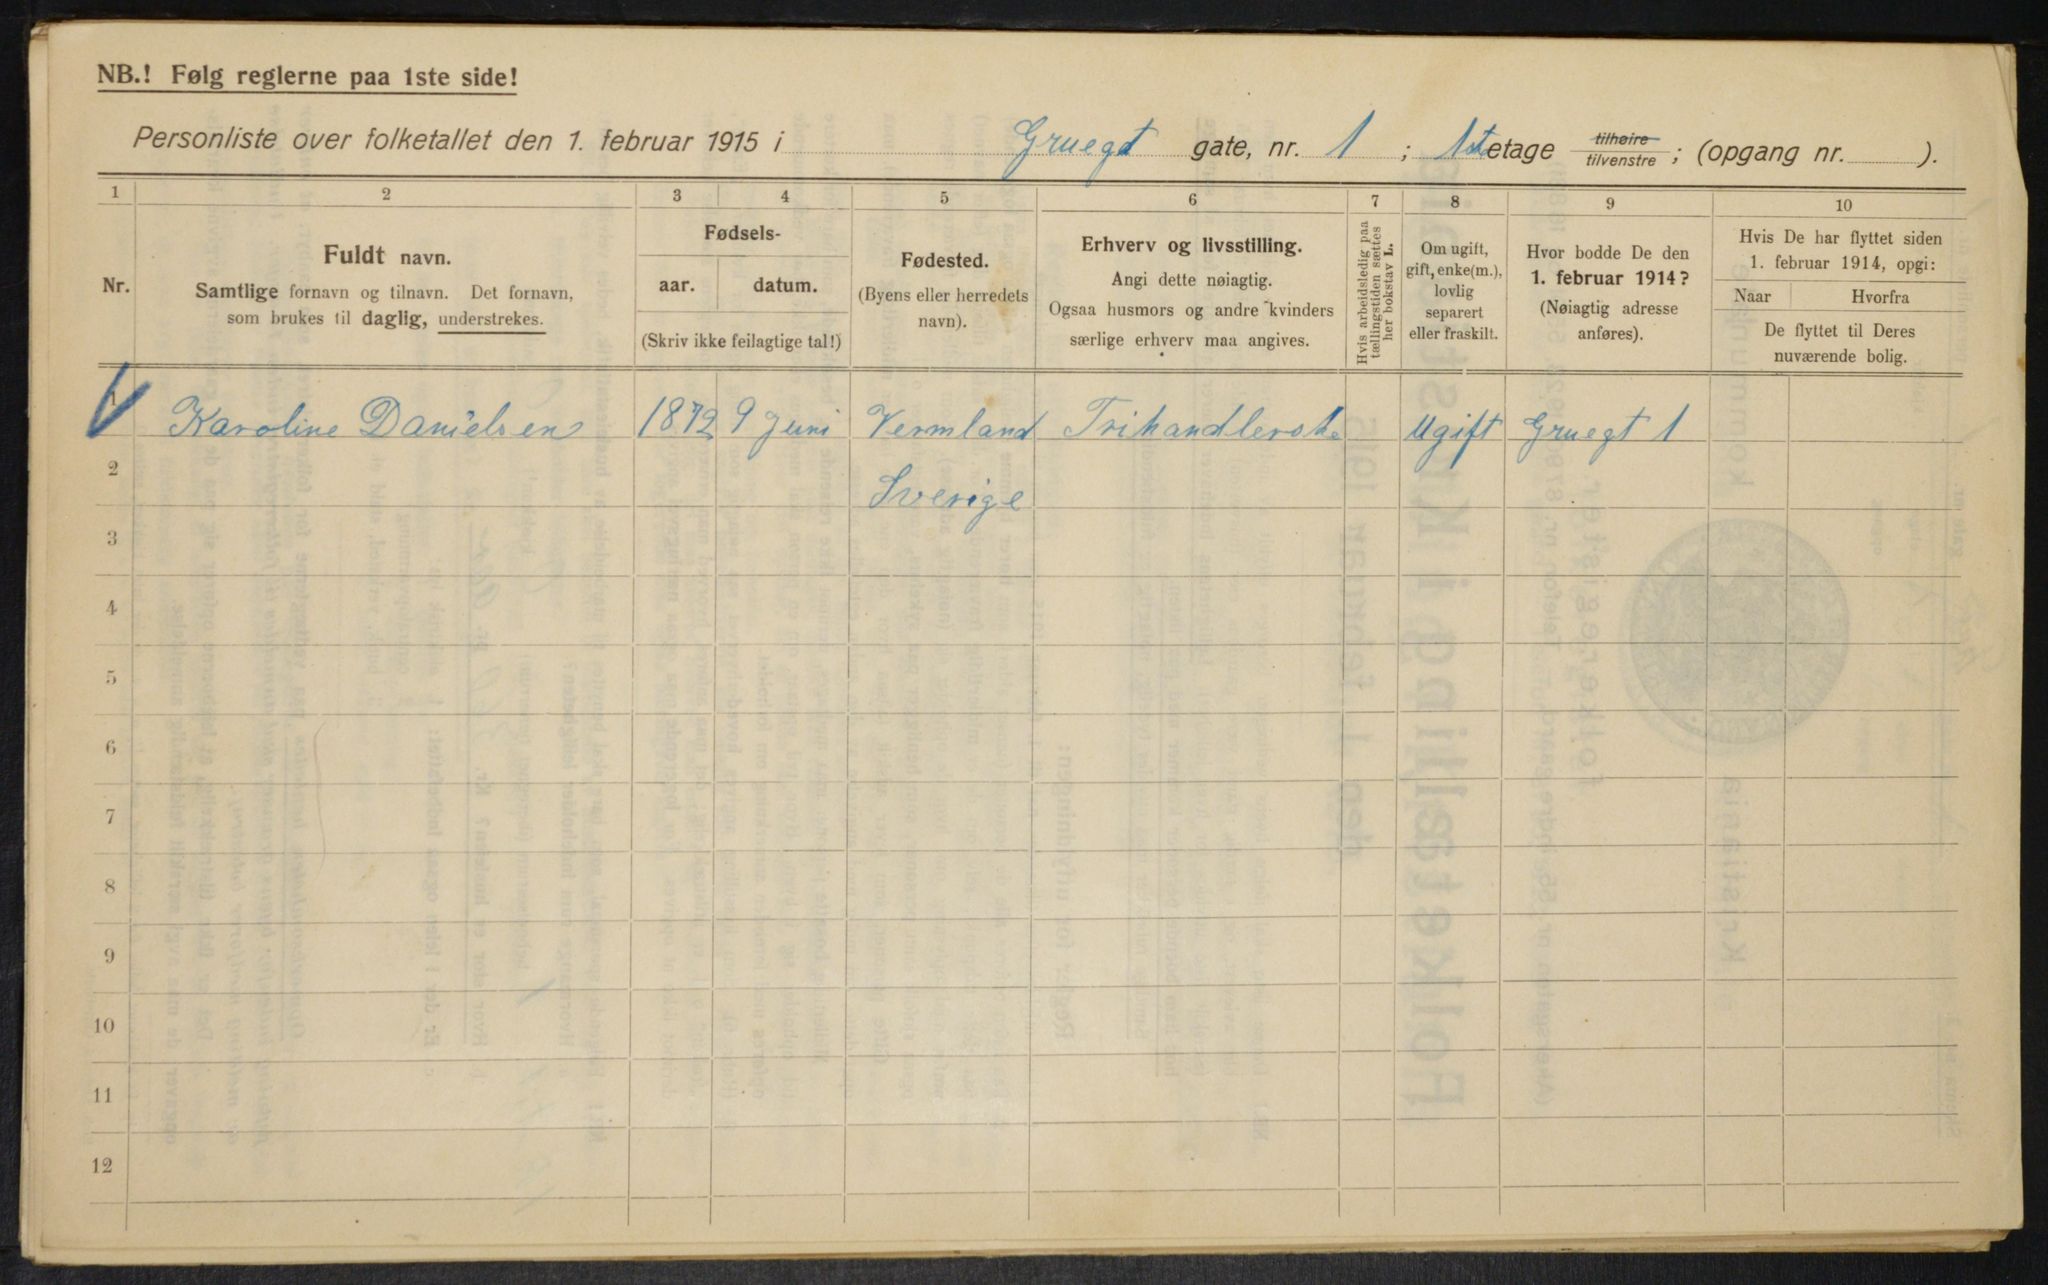 NB.! Følg reglerne paa 1ste side!
Personliste over folketallet den 1. februar 1915 i Gruegt gate, nr. 1 ; 1ste etage tilhøire tilvenstre ; (opgang nr. ).
1 2 3 4 5 6 7 8 9 10
Nr.
Fuldt navn.
Samtlige fornavn og tilnavn. Det fornavn,
som brukes til daglig, understrekes.
Fødsels-
aar. datum.
(Skriv ikke feilagtige tal!)
Fødested.
(Byens eller herredets
navn).
Erhverv og livsstilling.
Angi dette nøiagtig.
Ogsaa husmors og andre kvinders
særlige erhverv maa angives.
Hvis arbeidsledig paa
tællingstiden sættes
her bokstav L.
Om ugift,
gift, enke(m.),
lovlig
separert
eller fraskilt.
Hvor bodde De den
1. februar 1914?
(Nøiagtig adresse
anføres).
Hvis De har flyttet siden
1. februar 1914, opgi:
Naar Hvorfra
De flyttet til Deres
nuværende bolig.
1 Karoline Danielsen 1872 9 Juni Vermland Ugift Gruegt 1
2 Sverige
3
4
5
6
7
8
9
10
11
12